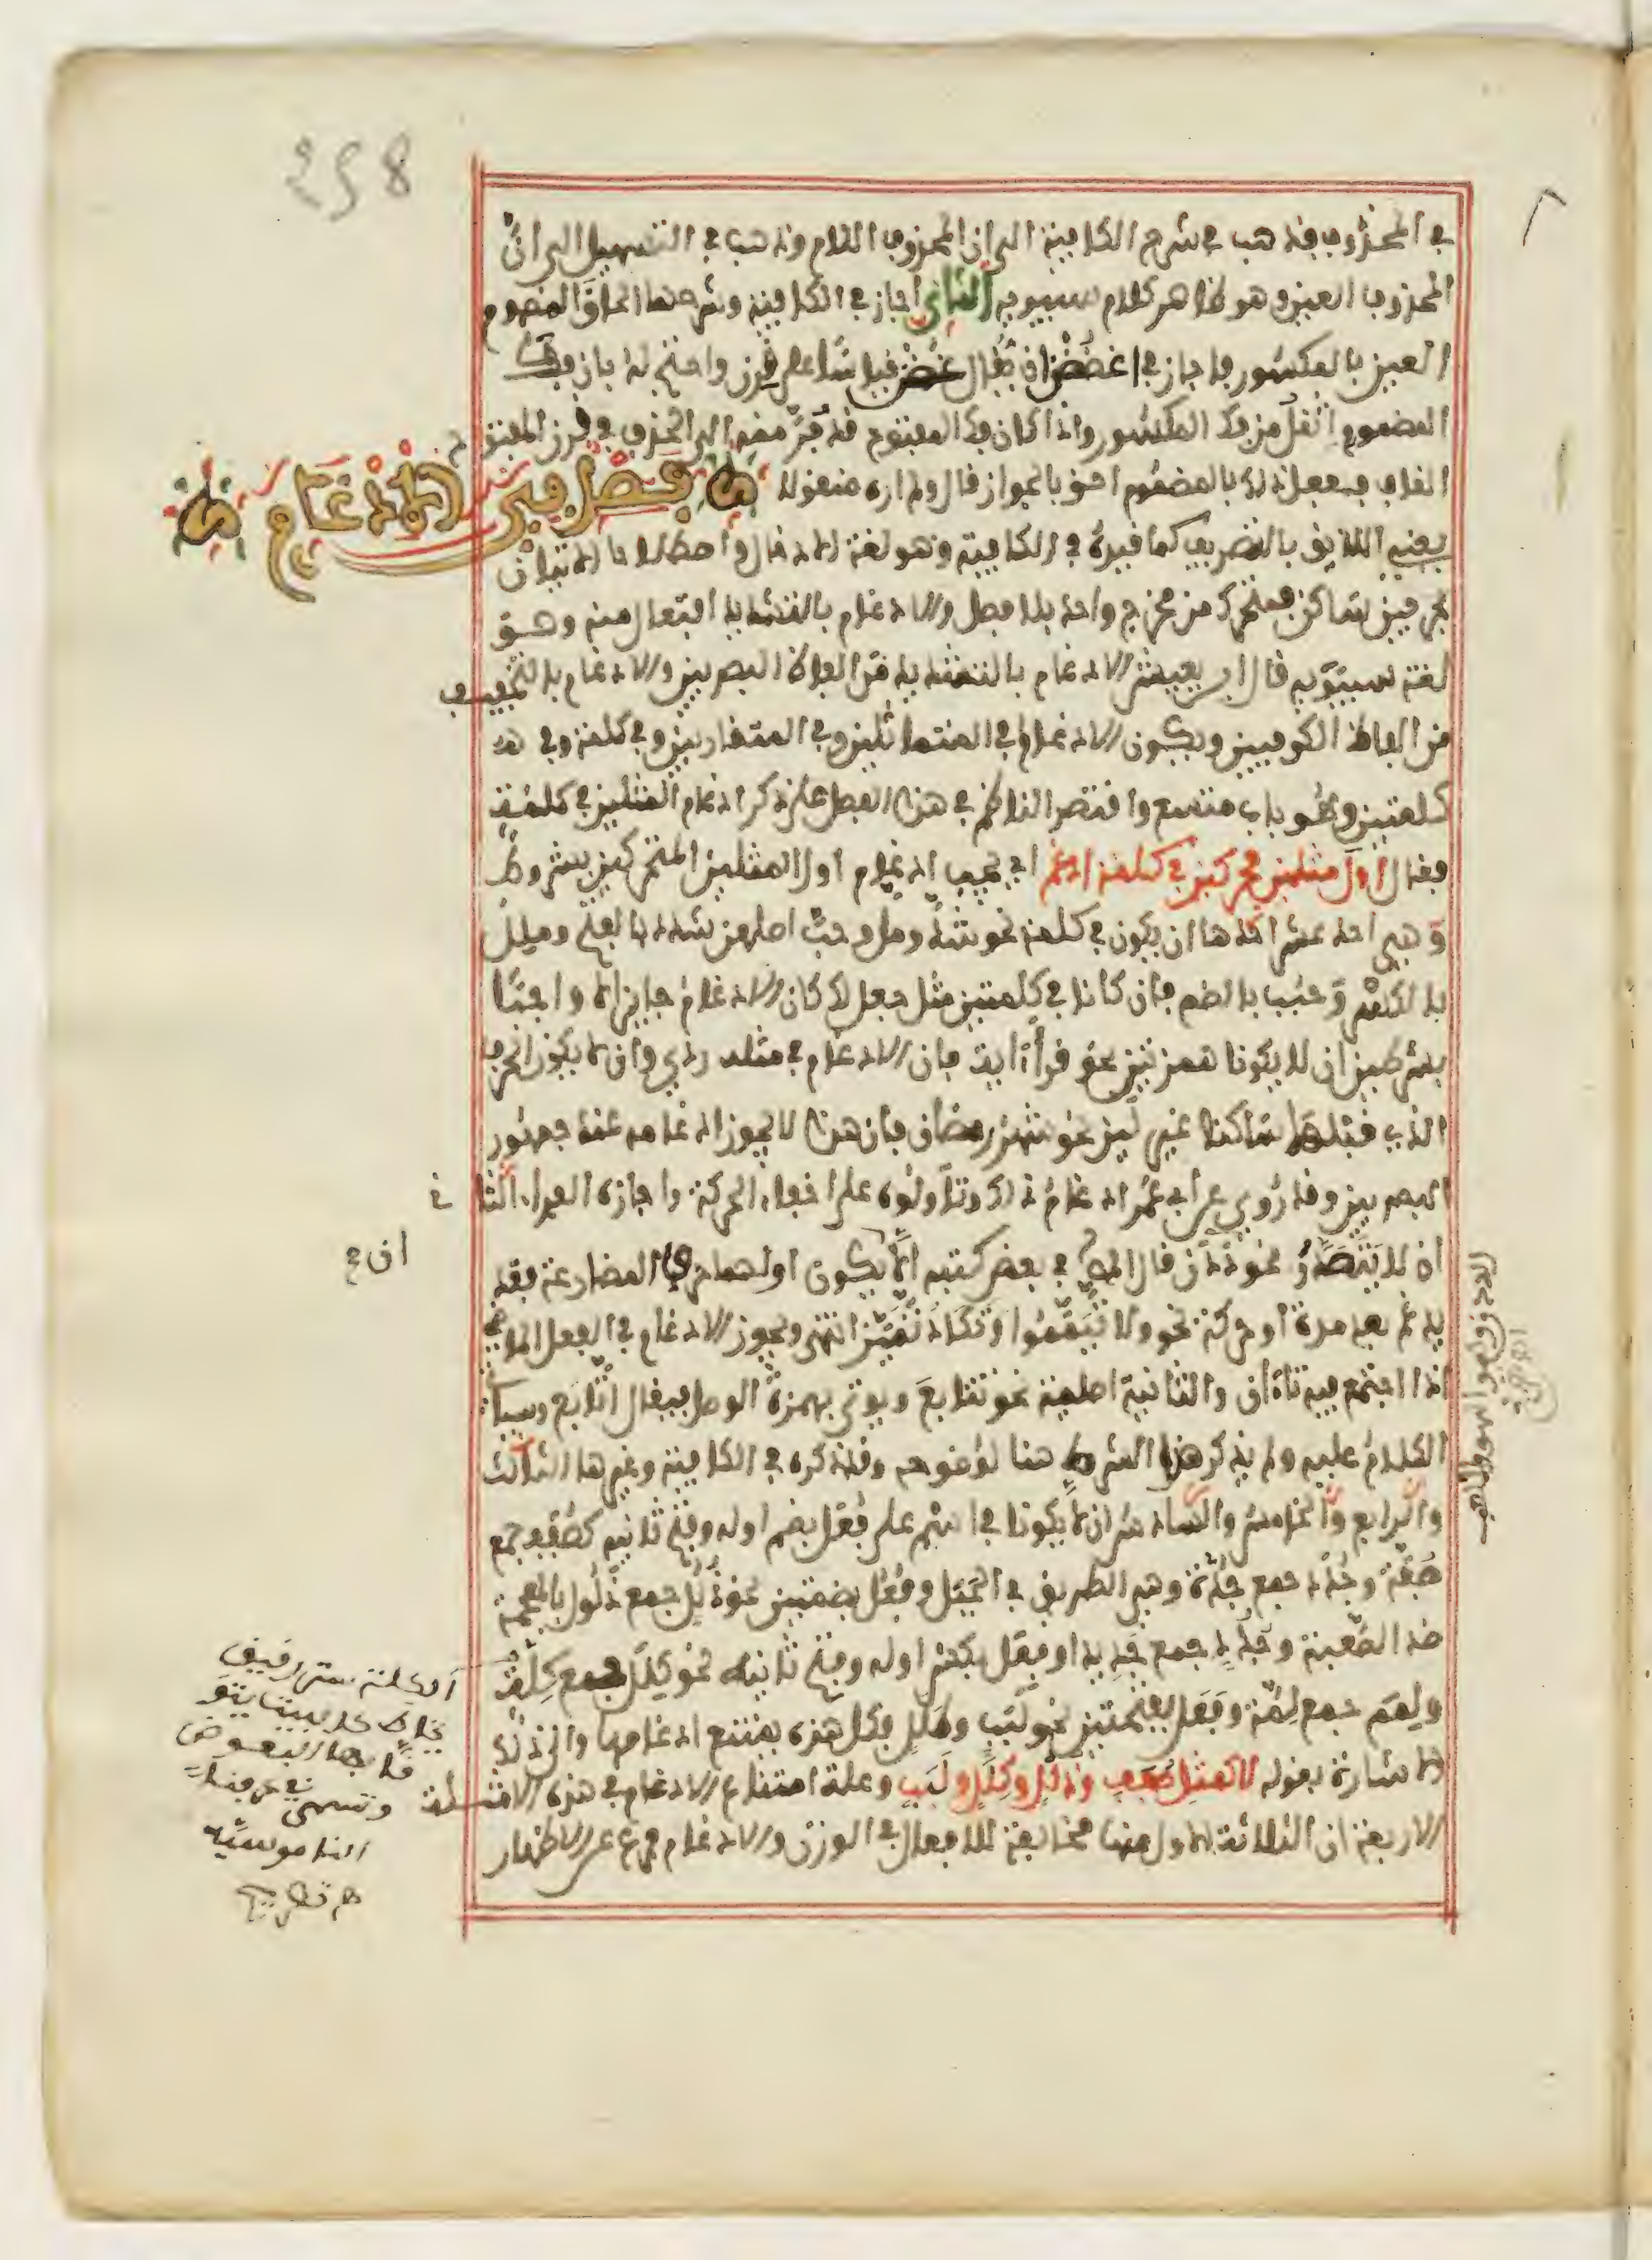 في المحذوف فذهب في شرح الكافية الى ان المحذوف اللام وذهب في التسهيل الى انّ
المحذوف العين وهو ظاهر كلام سيبويه الثاني اجاز في الكافية وشرحها الحاق المضموم
العين بالمكسور فاجاز في اغضضن ان يقال غضن قياسا على قرن واحتج له بان فك
المضموم اثقل من فك المكسور واذا كان فك المفتوح قد فرّ منه الى الحذف في قرن المفتوح
القاف ففعل ذلك بالمضموم احق بالجواز قال ولم اره منقولا فصل في الادغام
يعني اللايق بالتصريف كما قيده في الكافية وهو لغة الادخال واصطلاحا الاتيان
بحرفين ساكن فمتحرك من مخرج واحد بلا فصل والادغام بالتشديد افتعال منه وهو
لغة سيبويه قال ابن يعيش الادغام بالتشديد من الفاظ البصريين والادغام بالتخفيف
من الفاظ الكوفيين ويكون الادغام في المتماثلين وفي المتقاربين وفي كلمة وفي
كلمتين وهو باب متسع واقتصر الناظم في هذا الفصل على ذكر ادغام المثلين في كلمة
فقال اول مثلين محركين في كلمة ادغم اي يجب ادغام اول المثلين المتحركين بشروط
وهي احد عشر احدها ان يكون في كلمة نحو شدّ وملّ وحبّ اصلهن شدد بالفتح وملل
بالكسر وحبب بالضم فان كانا في كلمتين مثل جعل لك كان الادغام جايزا لا واجبًا
بشرطين ان لا يكونا همزتين نحو قرأ آية فان الادغام في مثله ردي وان لا يكون الحرف
الذي قبلهما ساكنا غير لين نحو شهر رمضان فان هذا لا يجوز ادغامه عند جمهور
البصريين وقد روي عن ابي عمر ادغام ذلك وتاولوه على اخفاء الحركة واجازه الفراء الثاني
ان لا يتصدر نحو ددن قال المص في بعض كتبه الا ان يكون اولهما تاء المضارعة فقد
يدغم بعد مدة او حركة نحو ولا تيمموا وتكاد تميز انتهى ويجوز الادغام في الفعل الماضي
اذا اجتمع فيه تاءان والثانية اصلية نحو تتابع ويوتى بهمزة الوصل فيقال اتّابع وسياتي
الكلام عليه ولم يذكر هذا الشرط هنا لوضوحه وقد ذكره في الكافية وغيرها الثالث
والرابع والخامس والسادس ان لا يكونا في اسم على فُعَل بضم اوله وفتح ثانيه كصفف جمع
صفة وجدد جمع جدة وهي الطريق في الجبل وفعل بضمتين نحو ذلل جمع ذلول بالمعجمة
ضد الصعبة وجدد جمع جديد او فعل بكسر اوله وفتح ثانيه نحو كلل جمع كلة
ولمم جمع لمة وفعل بفتحتين نحو لبب وطلل فكل هذه يمتنع ادغامها والى ذلك
الاشارة بقوله لا كمثل صفف وذلل وكلل ولبب وعلة امتناع الادغام في هذه الامثلة
الاربعة ان الثلاثة الاول منها مخالفة للافعال في الوزن والادغام فرع عن الاظهار
ان ح
اي كلة ستر رقيق
يخاط كالبيت يتو
قا بها البعوض
وتسمى في عرفنا
الناموسية